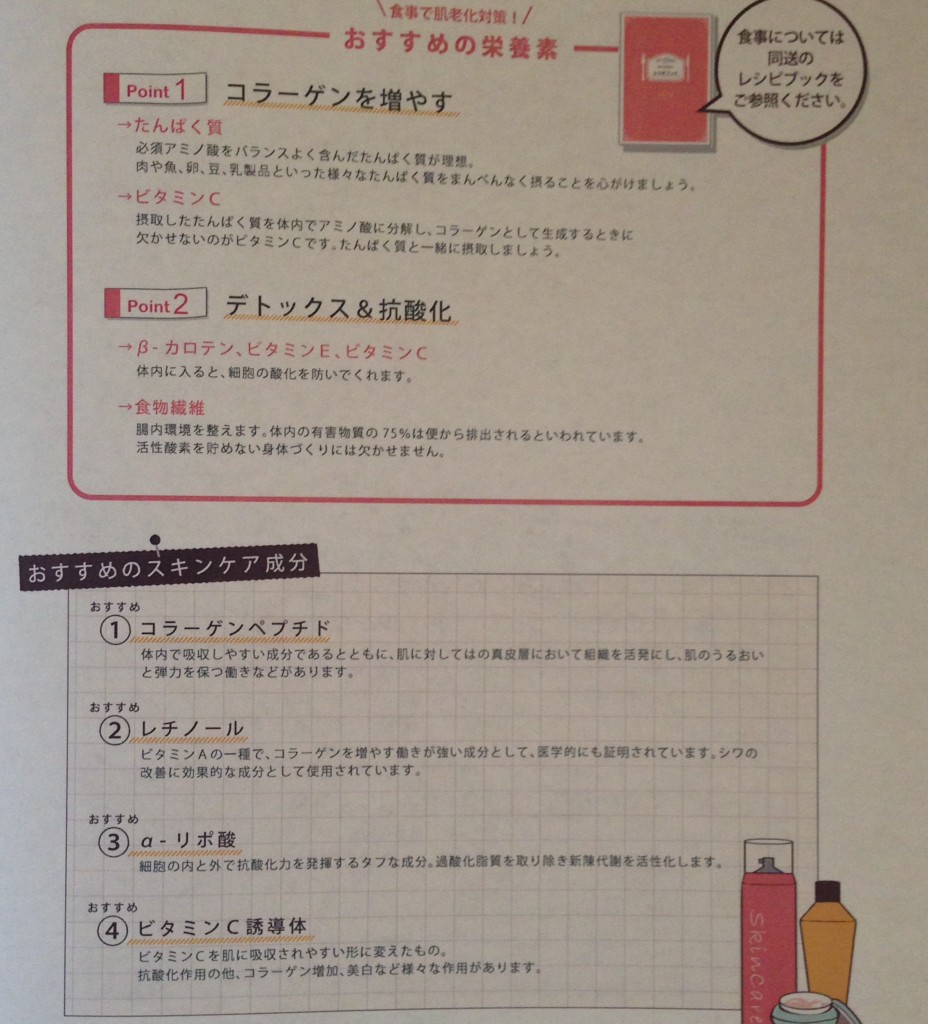 食事で肌老化対策！
おすすめの栄養素
食事については
同送の
レシピブックを
ご参照ください。
Point 1 コラーゲンを増やす
→たんぱく質
必須アミノ酸をバランスよく含んだたんぱく質が理想。
肉や魚、卵、豆、乳製品といった様々なたんぱく質をまんべんなく摂ることを心がけましょう。
→ビタミンC
摂取したたんぱく質を体内でアミノ酸に分解し、コラーゲンとして生成するときに
欠かせないのがビタミンCです。たんぱく質と一緒に摂取しましょう。
Point 2 デトックス＆抗酸化
→β-カロテン、ビタミンE、ビタミンC
体内に入ると、細胞の酸化を防いでくれます。
→食物繊維
腸内環境を整えます。体内の有害物質の75%は便から排出されるといわれています。
活性酸素を貯めない身体づくりには欠かせません。
おすすめのスキンケア成分
おすすめ
① コラーゲンペプチド
体内で吸収しやすい成分であるとともに、肌に対してはの真皮層において組織を活発にし、肌のうるおい
と弾力を保つ働きなどがあります。
おすすめ
② レチノール
ビタミンAの一種で、コラーゲンを増やす働きが強い成分として、医学的にも証明されています。シワの
改善に効果的な成分として使用されています。
おすすめ
③ α-リポ酸
細胞の内と外で抗酸化力を発揮するタフな成分。過酸化脂質を取り除き新陳代謝を活性化します。
おすすめ
④ ビタミンC誘導体
ビタミンCを肌に吸収されやすい形に変えたもの。
抗酸化作用の他、コラーゲン増加、美白など様々な作用があります。
Skincare